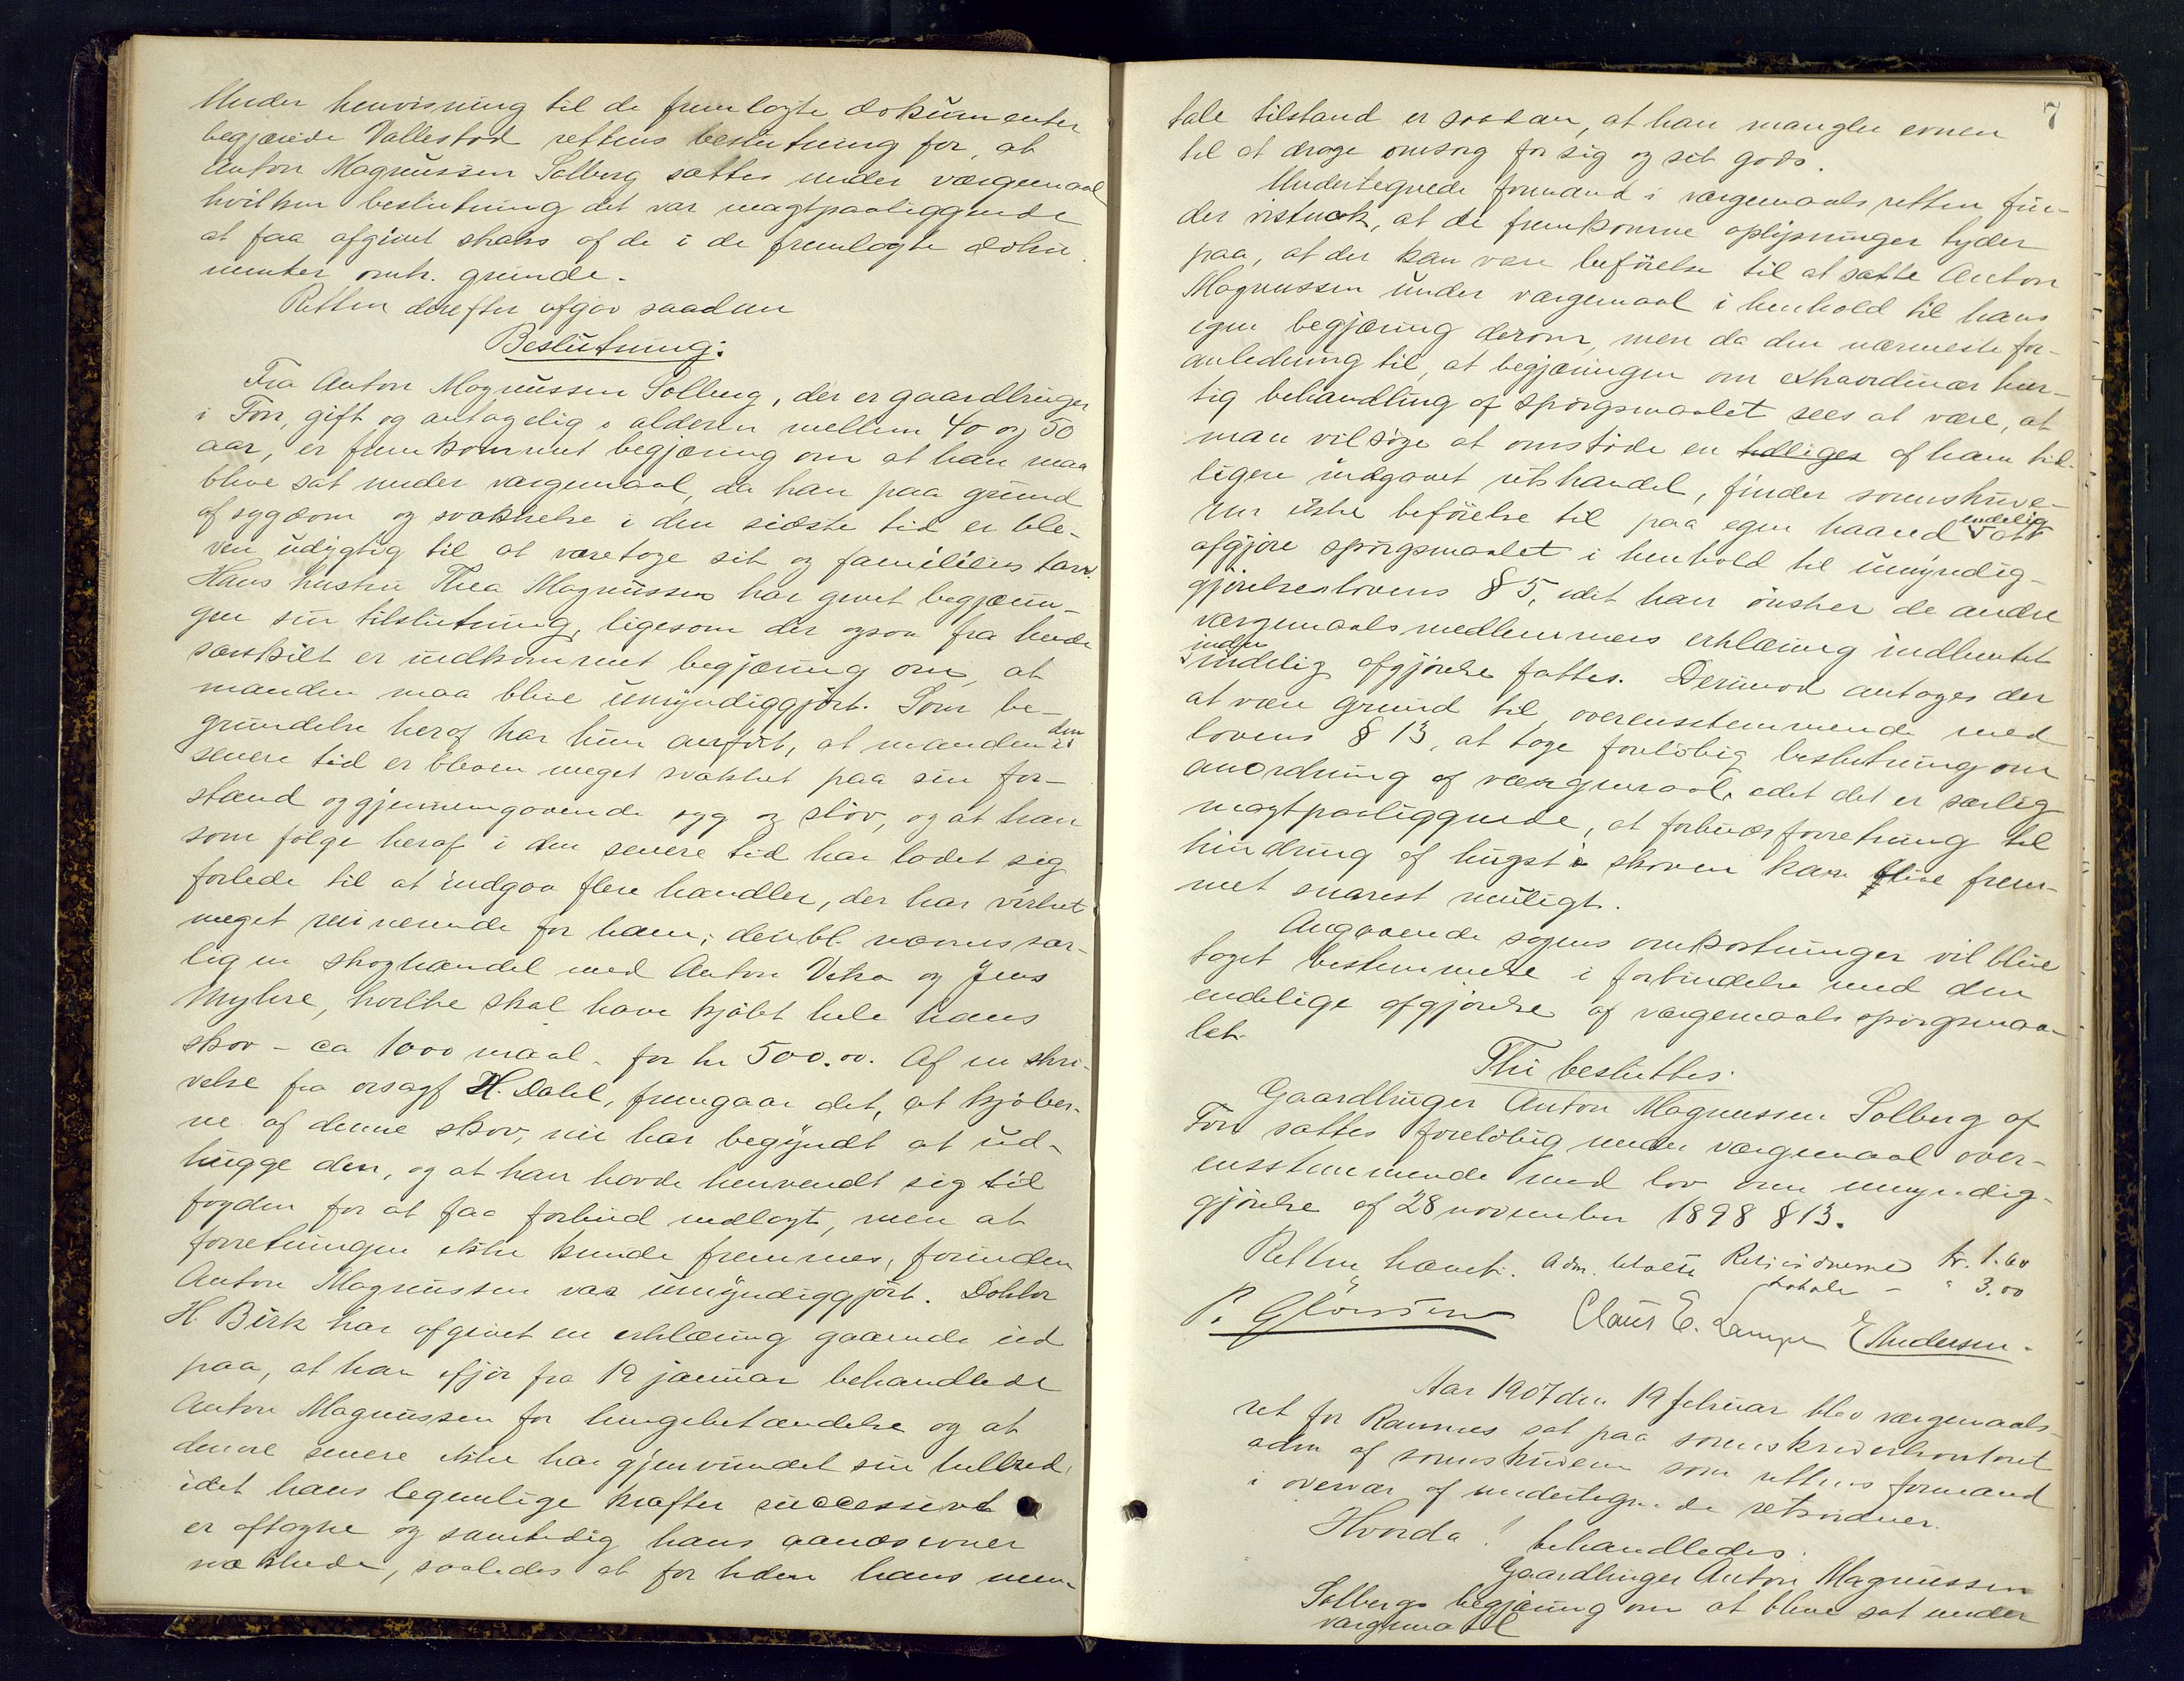 Under henvisning til de fremlagte dokumenter
begjærede Vallestad rettens beslutning for, at
Anton Magnussen Solberg sattes under værgemaal
hvilken beslutning det var magtpaaliggende
at faa afgivet straks af de i de fremlagte doku-
menter omh. grunde.
Retten derefter afgav saadan
Beslutning:
Fra Anton Magnussen Solberg, der er gaardbruger
i Fon, gift og antagelig i alderen mellem 40 og 50
aar, er fremkommet begjæring om at han maa
blive sat under værgemaal, da han paa grund
af sygdom og svækkelse i den sidste tid er ble-
ven udygtig til at varetage sit og familiens tarv.
Hans hustru Thea Magnussen har givet begjærin-
gen sin tilslutning, ligesom der ogsaa fra hende
særskilt er indkommet begjæring om, at
manden maa blive umyndiggjort. Som be-
grundelse heraf har hun anført, at manden i den
senere tid er bleven meget svækket paa sin for-
stand og gjennemgaaende syg og sløv, og at han
som følge heraf i den senere tid har ladet sig
forlede til at indgaa flere handler, der har virket
meget ruinerende for ham; deribl. nævnes sær-
lig en skoghandel med Anton Veka og Jens
Myhre, hvilke skal have kjøbt hele hans
skov - ca 1000 maal - for kr 500.00. Af en skri-
velse fra orsagf H. Dahl, fremgaar det, at kjøber-
ne af denne skov, nu har begyndt at ud-
hugge den, og at han havde henvendt sig til
fogden for at faa forbud nedlagt, men at
forretningen ikke kunde fremmes, forinden
Anton Magnussen var umyndiggjort. Doktor
H. Birk har afgivet en erklæring gaaende ud
paa, at han ifjor fra 19 januar behandlede
Anton Magnussen for lungebetændelse og at
denne senere ikke har gjenvundet sin helbred,
idet hans legemlige kræfter successivt
er aftagne og samtidig hans aandsevner
svækkede, saaledes at for tiden hans men-
7
tale tilstand er saadan, at han mangler evnen
til at drage omsorg for sig og sit gods.
Undertegnede formand i værgemaalsretten fin-
der vistnok, at de fremkomne oplysninger tyder
paa, at der kan være beføielse til at sætte Anton
Magnussen under værgemaal i henhold til hans
egen begjæring derom, men da den nærmeste for-
anledning til, at begjæringen om extraordinær hur-
tig behandling af spørgsmaalet sees at være, at
man vil søge at omstøde en tidligere af ham tid-
ligere indgaaet retshandel, finder sorenskrive-
ren ikke beføielse til paa egen haand endelig at
afgjøre spørgsmaalet i henhold til umyndig-
gjørelseslovens § 5, idet han ønsker de andre
værgemaalsmedlemmers erklæring indhentet
inden endelig afgjørelse fattes. Derimod antages der
at være grund til, overensstemmende med
lovens § 13, at tage foreløbig beslutning om
anordning af værgemaal, idet det er særlig
magtpaaliggende, at forbudsforretning til
hindring af hugst i skoven kan blive frem-
met snarest muligt.
Angaaende sagens omkostninger vil blive
taget bestemmelse i forbindelse med den
endelige afgjørelse af værgemaalsspørgsmaa-
let.
Thi besluttes:
Gaardbruger Anton Magnussen Solberg af
Fon sættes foreløbig under værgemaal over-
ensstemmende med lov om umyndig-
gjørelse af 28 november 1898 § 13.
Retten hævet. Adm. betalte Retsvidnerne kr. 1.60
Lokale - " 3.00
Claus E. E Andersen.
Aar 1907 den 19 februar blev værgemaals-
ret for Ramnes sat paa sorenskriverkontoret
adm af sorenskriveren som rettens formand
i overvær af undertegnede retsvidner.
Hvorda! behandledes:
Gaardbruger Anton Magnussen
Solbergs begjæring om at blive sat under
værgemaal